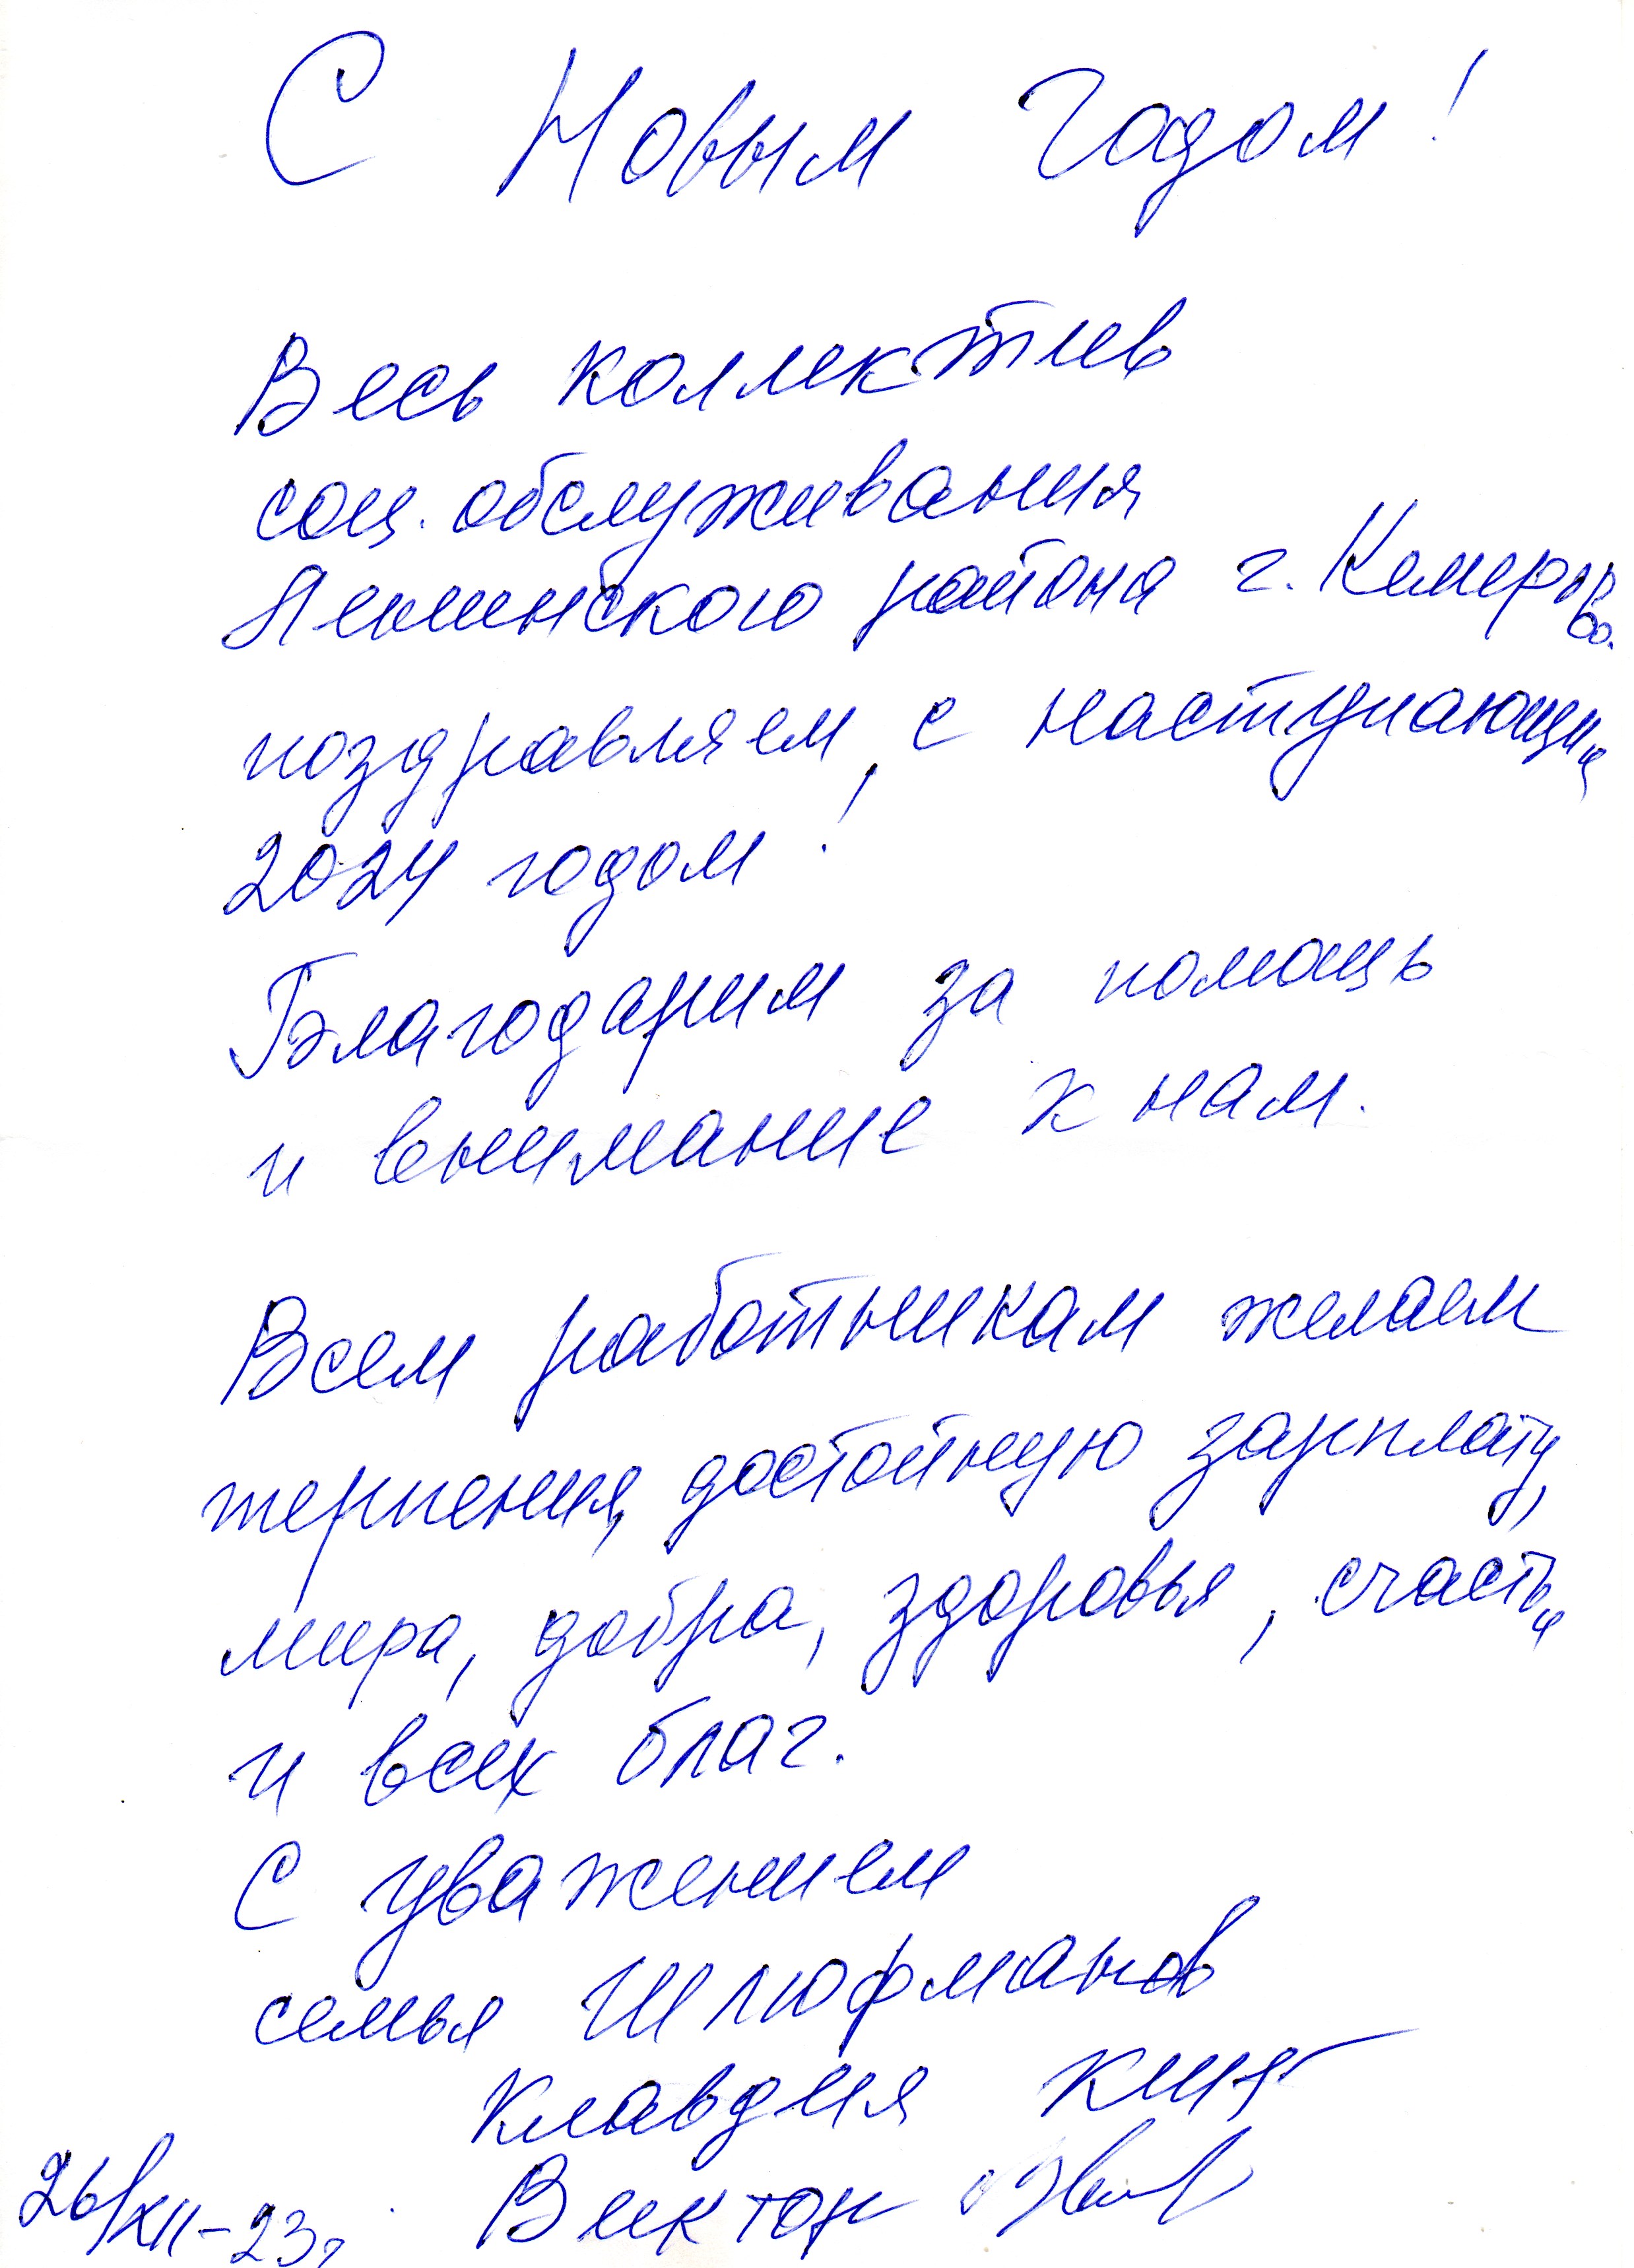 С Новым Годом!
Весь коллектив
соц. обслуживания
Ленинского района г. Кемерово.
поздравляем, с наступающим
2024 годом!
Благодарим за помощь
и внимание к нам.
Всем работникам желаем
терпения, достойную зарплату,
мира, добра, здоровья, счастья
и всех благ.
С уважением
семья Шлюфманов
Клавдия
Виктор
26/XII-23г